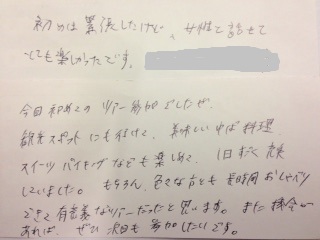 初めは緊張したけど、女性で話せて
とても楽しかったです。
今日初めてのツアー参加でしたが、
観光スポットにも行けて、美味しいゆば料理、
スイーツバイキングなども楽しめて、1日
していました。もちろん、色々な方とも長時間おしゃべり
できて有意義なツアーだったと思います。また機会が
あれば、ぜひ次回も参加したいです。